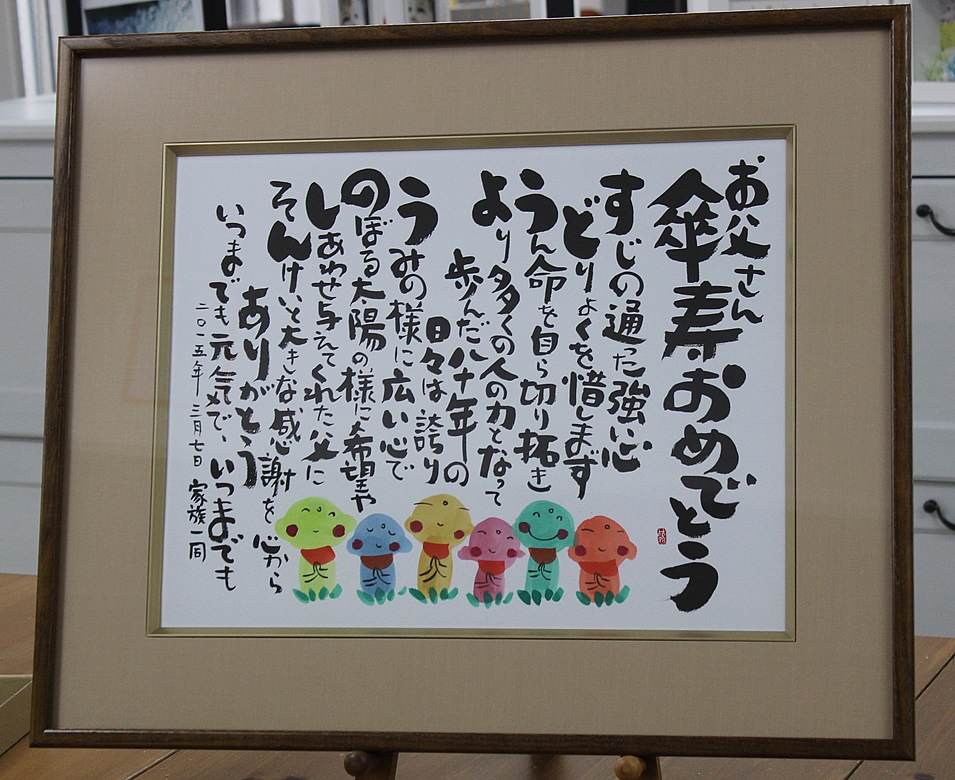 お父さん
傘寿おめでとう
すじの通った強い心
どりょくを惜しまず
うん命を自ら切り拓き
より多くの人の力となって
歩んだ八十年の
日々は誇り
うみの様に広い心で
のぼる太陽の様に希望や
しあわせ与えてくれた父に
そんけいと大きな感謝を心から
ありがとう
いつまでも元気で、いつまでも
二〇一五年三月七日 家族一同